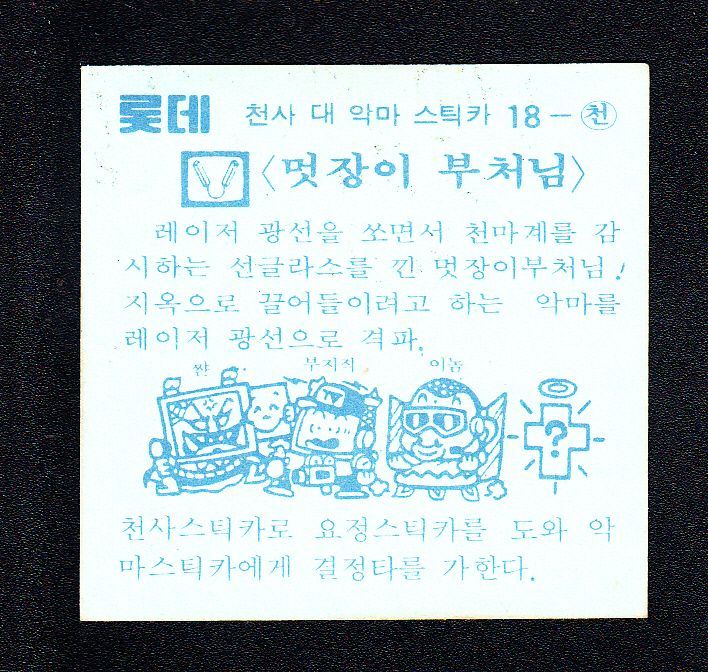 롯데 천사 대 악마 스틱카 18-천
〈멋장이 부처님〉
레이저 광선을 쏘면서 천마계를 감
시하는 선글라스를 낀 멋장이부처님!
지옥으로 끌어들이려고 하는 악마를
레이저 광선으로 격파.
쨘 부지직 이놈
TV
?
천사스틱카로 요정스틱카를 도와 악
마스틱카에게 결정타를 가한다.